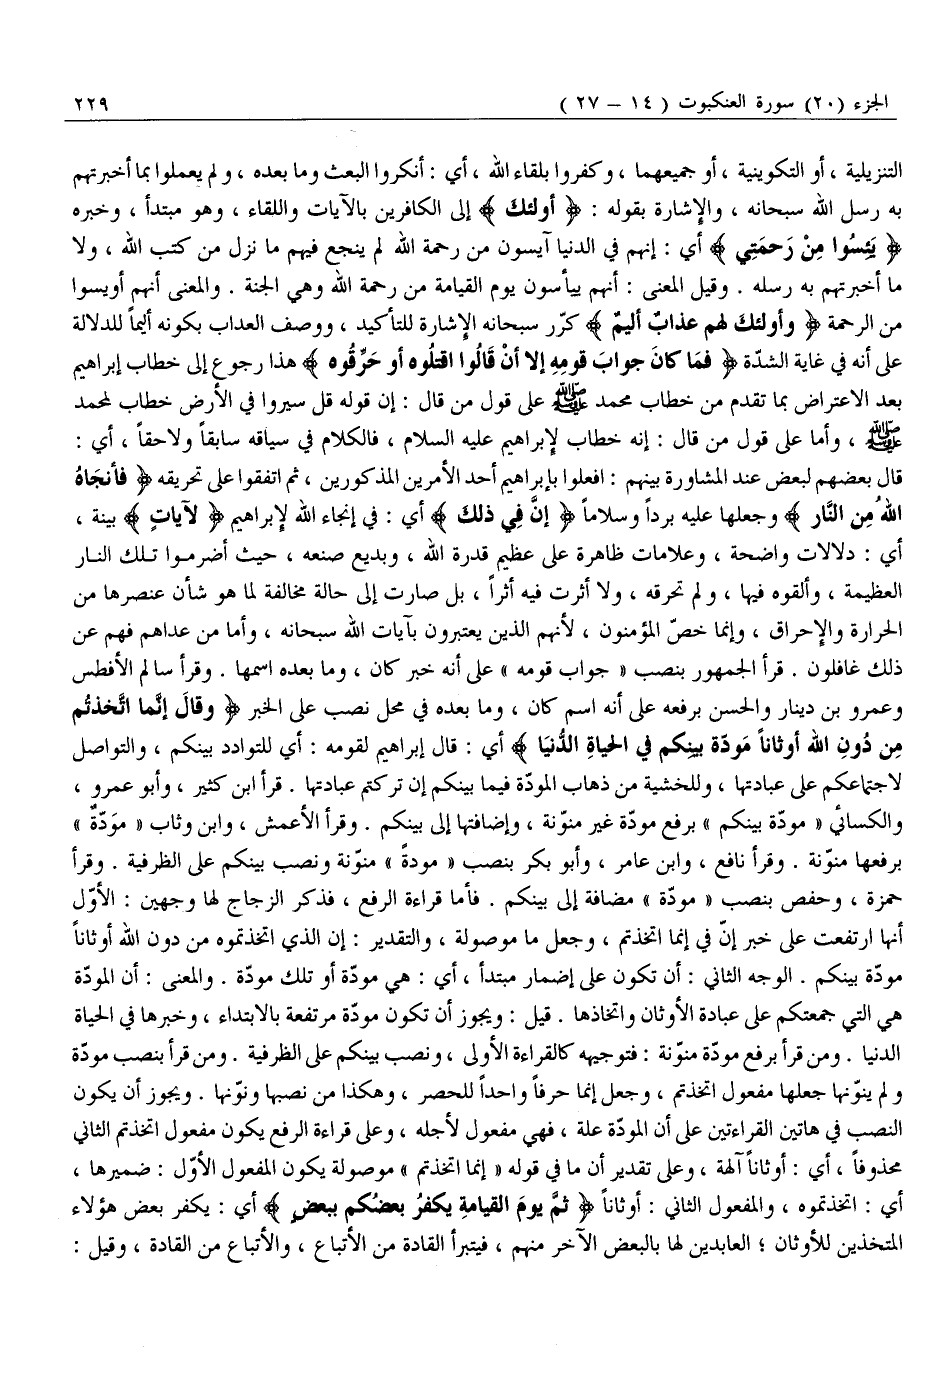 الجزء (٢٠) سورة العنكبوت ( ١٤ - ٢٧ ) ٢٢٩
التنزيلية ، أو التكوينية ، أو جميعهما ، وكفروا بلقاء الله ، أي : أنكروا البعث وما بعده ، ولم يعملوا بما أخبرتهم
به رسل الله سبحانه ، والإشارة بقوله : ﴿ أولئك ﴾ إلى الكافرين بالآيات واللقاء ، وهو مبتدأ ، وخبره
﴿ يَئِسُوا مِنْ رَحمَتِي ﴾ أي : إنهم في الدنيا آيسون من رحمة الله لم ينجع فيهم ما نزل من كتب الله ، ولا
ما أخبرتهم به رسله . وقيل المعنى : أنهم ييأسون يوم القيامة من رحمة الله وهي الجنة . والمعنى أنهم أويسوا
من الرحمة ﴿ وأولئك لهم عذابٌ أليمٌ ﴾ كرّر سبحانه الإشارة للتأكيد ، ووصف العذاب بكونه أليماً للدلالة
على أنه في غاية الشدّة ﴿ فمَا كانَ جوابَ قومِهِ إلا أنْ قَالُوا اقتلُوه أو حَرِّقُوه ﴾ هذا رجوع إلى خطاب إبراهيم
بعد الاعتراض بما تقدم من خطاب محمد ﷺ على قول من قال : إن قوله قل سيروا في الأرض خطاب لمحمد
ﷺ ، وأما على قول من قال : إنه خطاب لإبراهيم عليه السلام ، فالكلام في سياقه سابقاً ولاحقاً ، أي :
قال بعضهم لبعض عند المشاورة بينهم : افعلوا بإبراهيم أحد الأمرين المذكورين ، ثم اتفقوا على تحريقه ﴿ فأنجَاهُ
اللهُ مِن النَّار ﴾ وجعلها عليه برداً وسلاماً ﴿ إنَّ فِي ذلكَ ﴾ أي : في إنجاء الله لإبراهيم ﴿ لآياتٍ ﴾ بينة ،
أي : دلالات واضحة ، وعلامات ظاهرة على عظيم قدرة الله ، وبديع صنعه ، حيث أضرموا تلك النار
العظيمة ، وألقوه فيها ، ولم تحرقه ، ولا أثرت فيه أثراً ، بل صارت إلى حالة مخالفة لما هو شأن عنصرها من
الحرارة والإحراق ، وإنما خصّ المؤمنون ، لأنهم الذين يعتبرون بآيات الله سبحانه ، وأما من عداهم فهم عن
ذلك غافلون . قرأ الجمهور بنصب « جواب قومه » على أنه خبر كان ، وما بعده اسمها . وقرأ سالم الأفطس
وعمرو بن دينار والحسن برفعه على أنه اسم كان ، وما بعده في محل نصب على الخبر ﴿ وقالَ إنَّما اتَّخذتُم
مِن دُونِ الله أوثاناً مَودّة بينِكم في الحياةِ الدُّنيَا ﴾ أي : قال إبراهيم لقومه : أي للتوادد بينكم ، والتواصل
لاجتماعكم على عبادتها ، وللخشية من ذهاب المودّة فيما بينكم إن تركتم عبادتها . قرأ ابن كثير ، وأبو عمرو ،
والكسائي « مودّة بينكم » برفع مودّة غير منوّنة ، وإضافتها إلى بينكم . وقرأ الأعمش ، وابن وثاب « موَدّةٌ »
برفعها منوّنة . وقرأ نافع ، وابن عامر ، وأبو بكر بنصب « مودةً » منوّنة ونصب بينكم على الظرفية . وقرأ
حمزة ، وحفص بنصب « مودّة » مضافة إلى بينكم . فأما قراءة الرفع ، فذكر الزجاج لها وجهين : الأوّل
أنها ارتفعت على خبر إنّ في إنما اتخذتم ، وجعل ما موصولة ، والتقدير : إن الذي اتخذتموه من دون الله أوثاناً
مودّة بينكم . الوجه الثاني : أن تكون على إضمار مبتدأ ، أي : هي مودّة أو تلك مودّة . والمعنى : أن المودّة
هي التي جمعتكم على عبادة الأوثان واتخاذها . قيل : ويجوز أن تكون مودّة مرتفعة بالابتداء ، وخبرها في الحياة
الدنيا . ومن قرأ برفع مودّة منوّنة : فتوجيهه كالقراءة الأولى ، ونصب بينكم على الظرفية . ومن قرأ بنصب مودّة
ولم ينوّنها جعلها مفعول اتخذتم ، وجعل إنما حرفاً واحداً للحصر ، وهكذا من نصبها ونوّنها . ويجوز أن يكون
النصب في هاتين القراءتين على أن المودّة علة ، فهي مفعول لأجله ، وعلى قراءة الرفع يكون مفعول اتخذتم الثاني
محذوفاً ، أي : أوثاناً آلهة ، وعلى تقدير أن ما في قوله « إنما اتخذتم » موصولة يكون المفعول الأوّل : ضميرها ،
أي : اتخذتموه ، والمفعول الثاني : أوثاناً ﴿ ثمَّ يومَ القيامةِ يكفرُ بعضُكم ببعضٍ ﴾ أي : يكفر بعض هؤلاء
المتخذين للأوثان ؛ العابدين لها بالبعض الآخر منهم ، فيتبرأ القادة من الأتباع ، والأتباع من القادة ، وقيل :